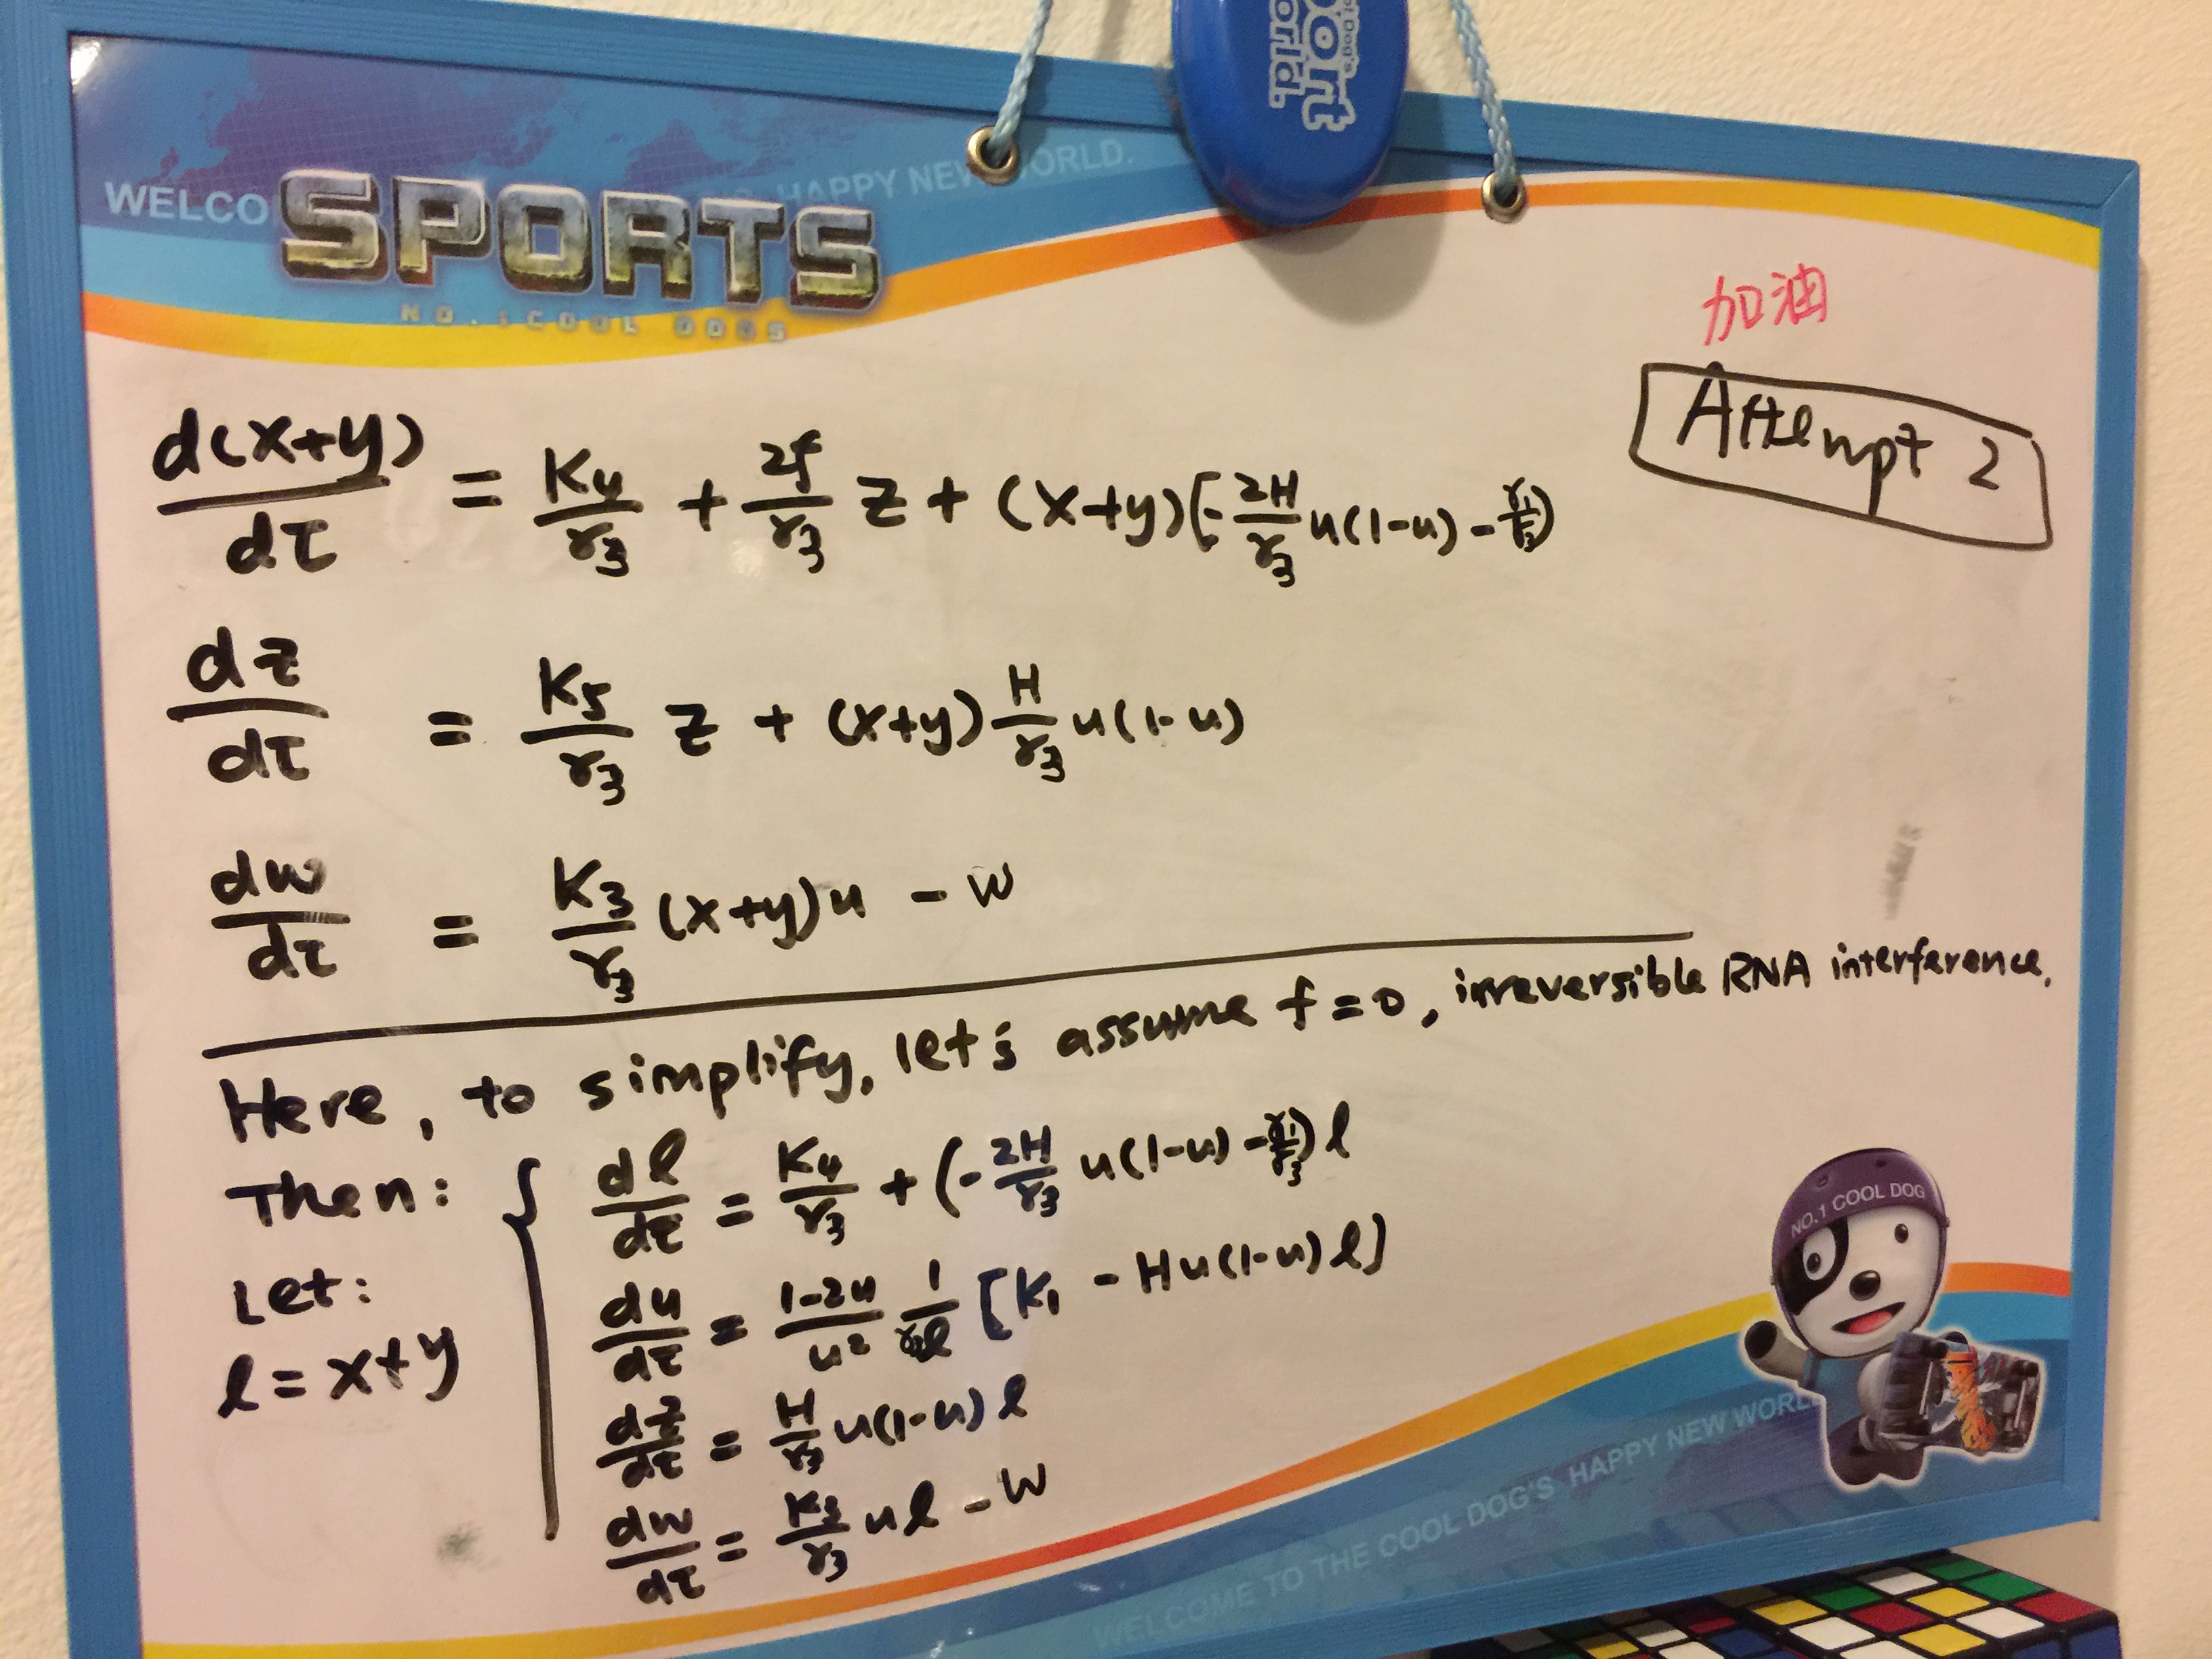 port
orld.
WELCO
HAPPY NEW WORLD.
SPORTS
NO.1COOL DOGS
加油
Attempt 2
d(x+y)/dτ = K4/γ3 + 2f/γ3 z + (x+y)(-2H/γ3 u(1-u) - γ1/γ3)
dz/dτ = K5/γ3 z + (x+y) H/γ3 u(1-u)
dw/dτ = K3/γ3 (x+y)u - w
Here, to simplify, let's assume f=0, irreversible RNA interference.
Then:
dl/dτ = K4/γ3 + (-2H/γ3 u(1-u) - γ1/γ3) l
Let:
l = x+y
du/dτ = 1-2u/u2 1/γ3l [K1 - Hu(1-u)l]
dz/dτ = H/γ3 u(1-u) l
dw/dτ = K3/γ3 ul - w
NO.1 COOL DOG
WELCOME TO THE COOL DOG'S HAPPY NEW WORL